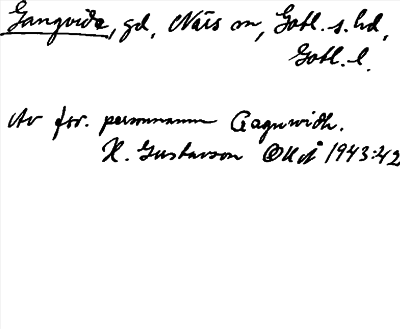 Gangvide, gd, När sn, Gotl. s. hd,
Gotl. l.
Av fsv. personnamn Gagnwidh.
H. Gustavson OUÅ 1943:42